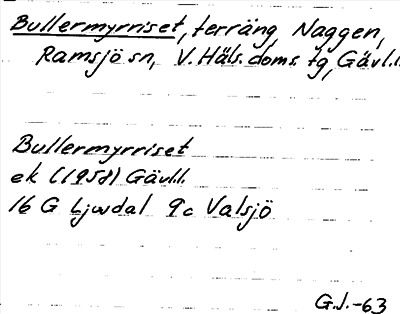 Bullermyrriset, terräng Naggen,
Ramsjö sn, V. Häls. doms. tg, Gävl.l.
Bullermyrriset
ek (1958) Gävl.l.
16 G Ljusdal 9c Valsjö
G.J.-63